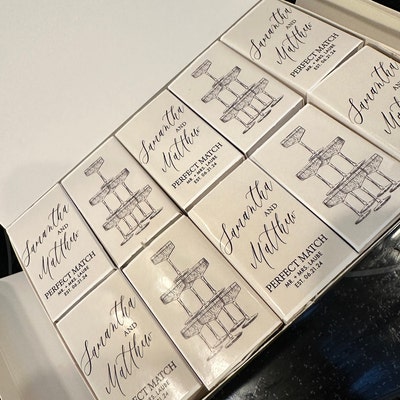 Samantha
AND
Matthew
PERFECT MATCH
MR. + MRS. LAUBE
EST. 06.21.24
Samantha
AND
Matthew
PERFECT MATCH
MR. + MRS. LAUBE
EST. 06.21.24
Samantha
AND
Matthew
PERFECT MATCH
MR. + MRS. LAUBE
EST. 06.21.24
Samantha
AND
Matthew
PERFECT MATCH
MR. + MRS. LAUBE
EST. 06.21.24
Samantha
AND
Matthew
PERFECT MATCH
MR. + MRS. LAUBE
EST. 06.21.24
Samantha
AND
Matthew